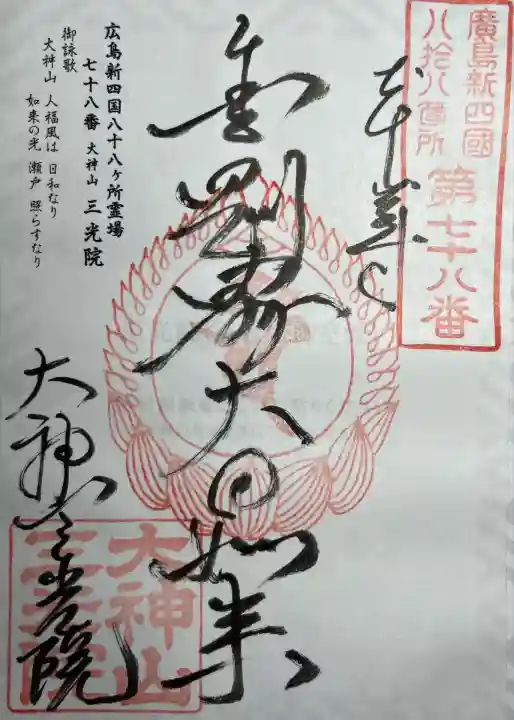 廣島新四國
八拾八箇所
第七十八番
奉拝
大日如来
大神山三光院
広島新四国八十八ヶ所霊場
七十八番 大神山 三光院
御詠歌
大神山 人福風は 日和なり
如来の光 瀬戸 照らすなり
大神山
三光院